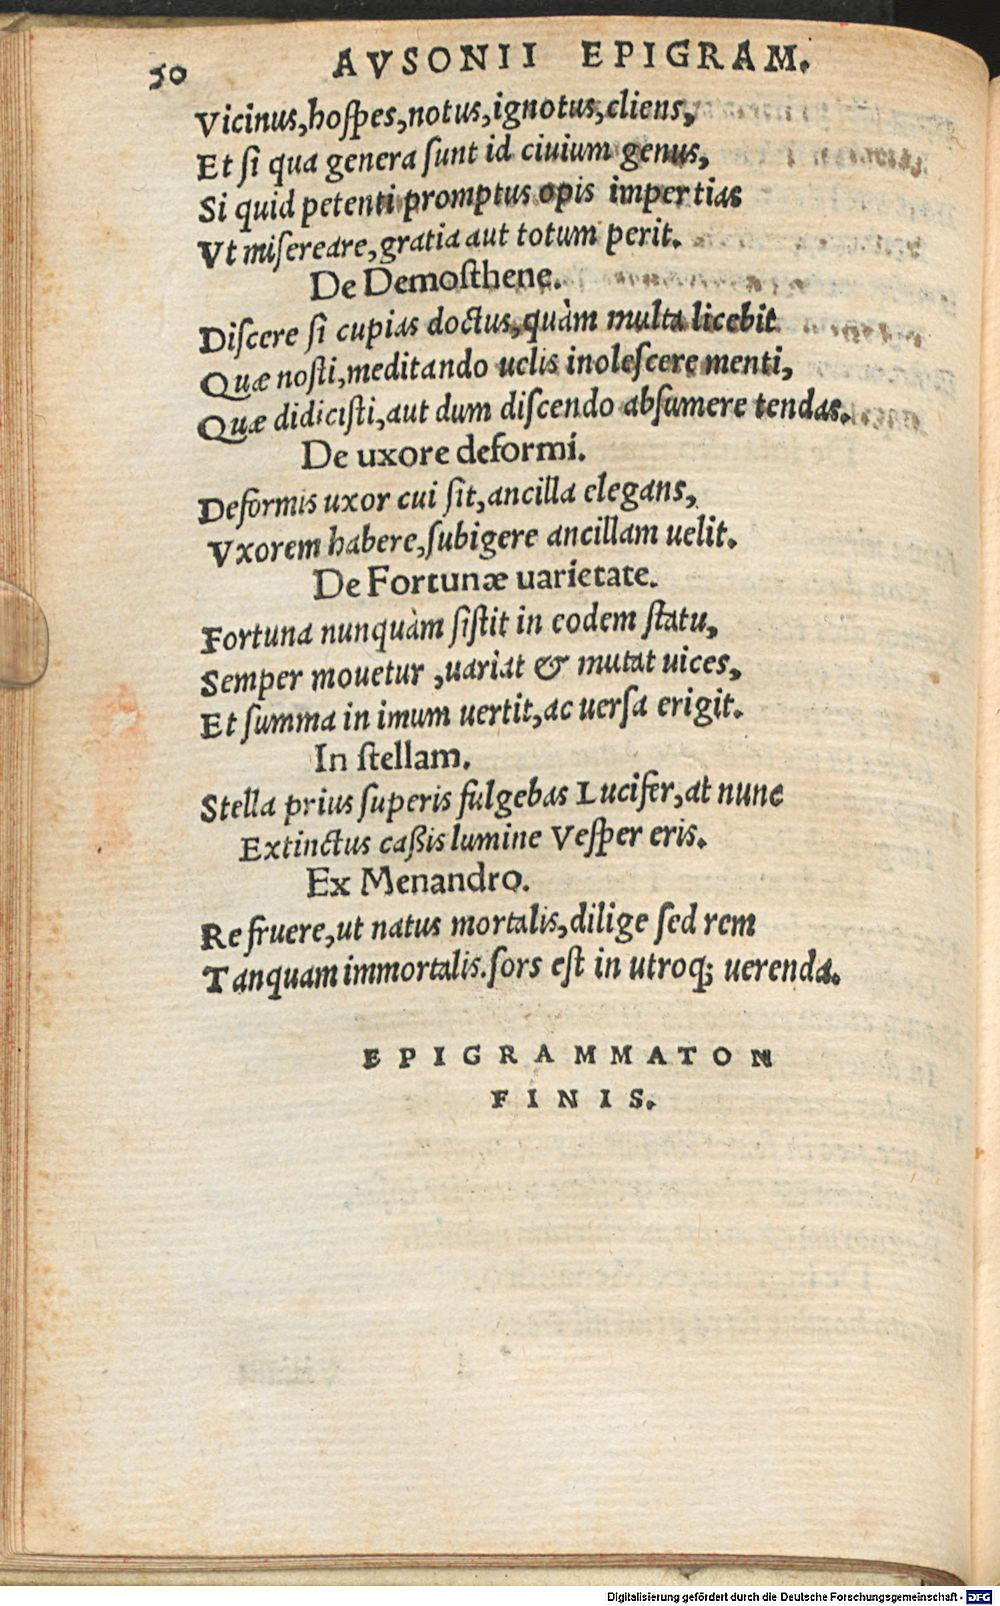 50 AVSONII EPIGRAM.
Vicinus, hoſpes, notus, ignotus, cliens,
Et ſi qua genera ſunt id ciuium genus,
Si quid petenti promptus opis impertias
Vt miſereare, gratia aut totum perit.
De Demoſthene.
Diſcere ſi cupias doctus, quàm multa licebit
Quæ noſti, meditando uelis inoleſcere menti,
Quæ didiciſti, aut dum diſcendo abſumere tendas.
De uxore deformi.
Deformis uxor cui ſit, ancilla elegans,
Vxorem habere, ſubigere ancillam uelit.
De Fortunæ uarietate.
Fortuna nunquàm ſiſtit in eodem ſtatu,
Semper mouetur, uariat & mutat uices,
Et ſumma in imum uertit, ac uerſa erigit.
In ſtellam.
Stella prius ſuperis fulgebas Lucifer, at nunc
Extinctus caßis lumine Veſper eris.
Ex Menandro.
Re fruere, ut natus mortalis, dilige ſed rem
Tanquam immortalis. ſors eſt in utroq; uerenda.
EPIGRAMMATON
FINIS.
Digitalisierung gefördert durch die Deutsche Forschungsgemeinschaft - DFG